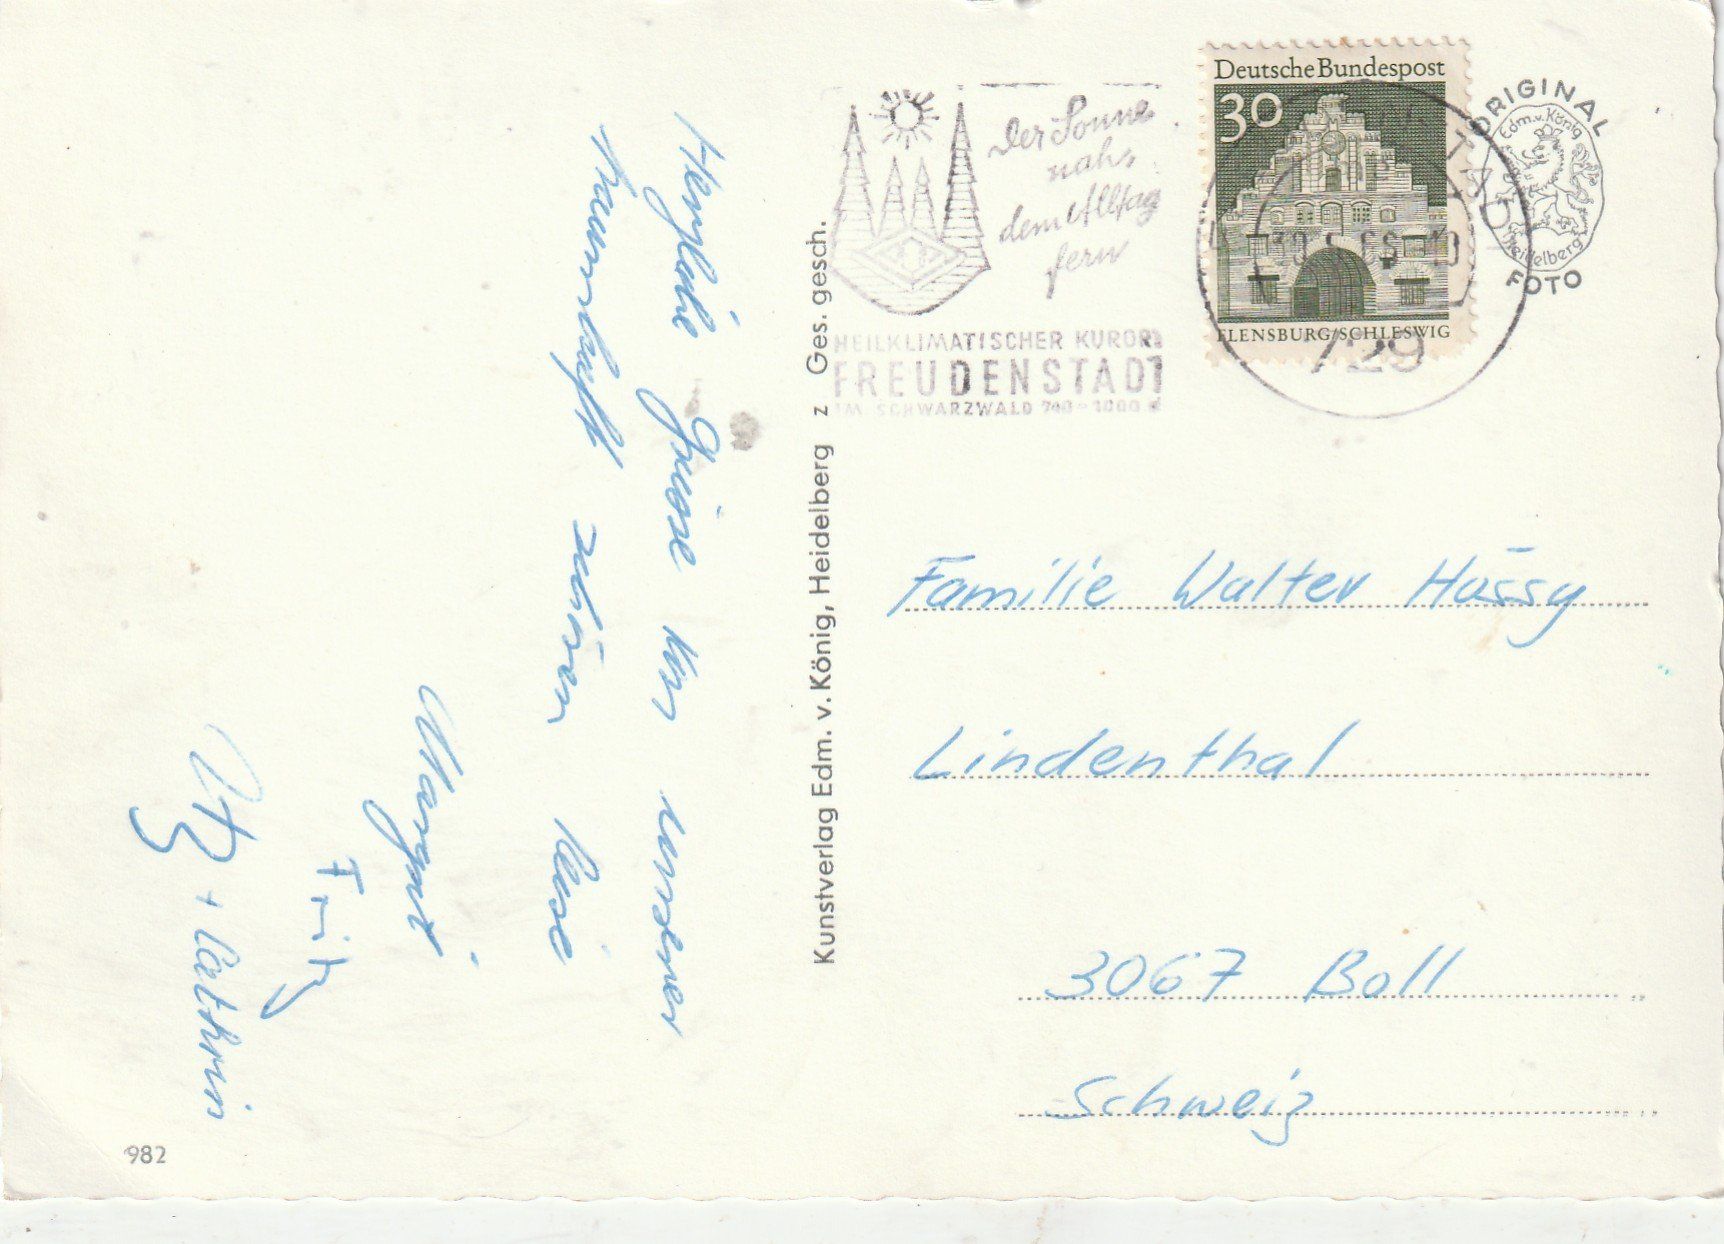 Herzliche Grüsse von unserer
traumhaft schönen Reise
Margrit
Fritz
+ Cathrin
982
Kunstverlag Edm. v. König, Heidelberg z Ges. gesch.
Der Sonne
nah,
dem Alltag
fern
HEILKLIMATISCHER KURORT
FREUDENSTADT
IM SCHWARZWALD 740-1000 M
Deutsche Bundespost
30
FLENSBURG/SCHLESWIG
729
ORIGINAL
Edm. v. König
Heidelberg
FOTO
Familie Walter
Lindenthal
3067 Boll
Schweiz